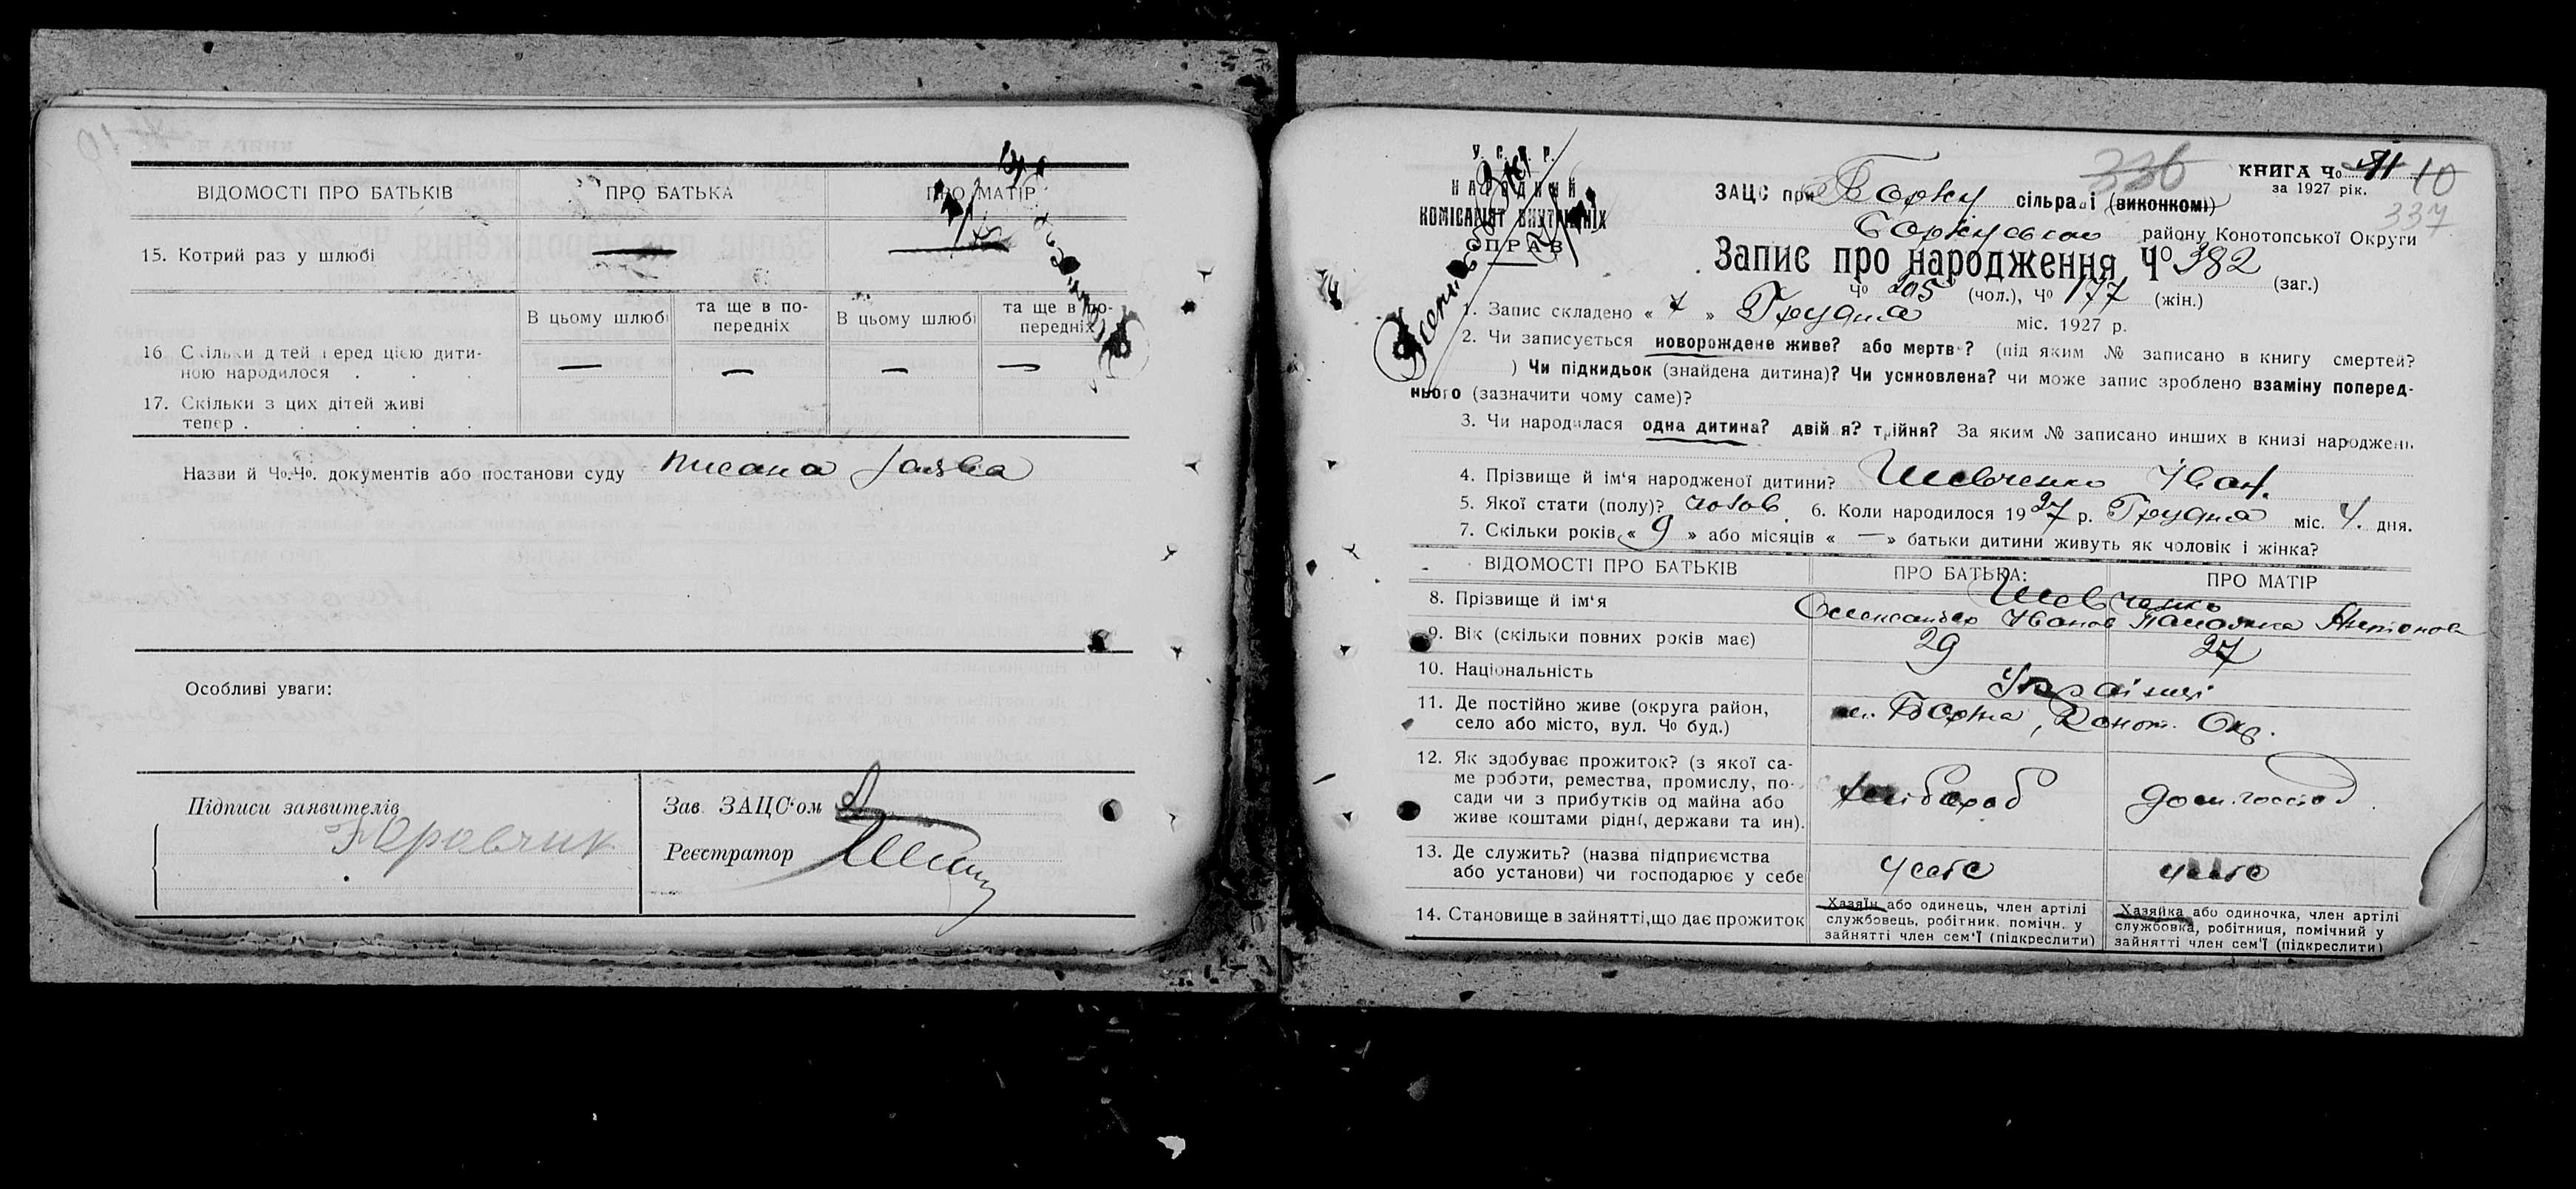 ВІДОМОСТІ ПРО БАТЬКІВ ПРО БАТЬКА ПРО МАТІР
15. Котрий раз у шлюбі — —
В цьому шлюбі та ще в по-передніх В цьому шлюбі та ще в по-передніх
16. Скільки дітей перед цією дити-
ною народилося . . . — — — —
17. Скільки з цих дітей живі
тепер . . . . .
Назви й Ч°.Ч°. документів або постанови суду
Особливі уваги:
Підписи заявителів
Зав. ЗАЦС‘ом
Реєстратор
У. С. Р. Р.
НАРОДНИЙ
КОМІСАРІЯТ ВНУТРІШНІХ
СПРАВ
336
КНИГА Ч° 11 10
за 1927 рік.
337
ЗАЦС при сільраді (виконкомі)
району Конотопської Округи
Запис про народження Ч° 382 (заг.)
Ч° 205 (чол.), Ч° 177 (жін.)
1. Запис складено « 7 » Грудня міс. 1927 р.
2. Чи записується новорождене живе? або мертве? (під яким № записано в книгу смертей?
) Чи підкидьок (знайдена дитина)? Чи усиновлена? чи може запис зроблено взаміну поперед-
нього (зазначити чому саме)?
3. Чи народилася одна дитина? двійня? трійня? За яким № записано инших в книзі народжень
4. Прізвище й ім‘я народженої дитини? Шевченко Іван.
5. Якої стати (полу)? чолов. 6. Коли народилося 1927 р. Грудня міс. 4. дня.
7. Скільки років « 9 » або місяців « — » батьки дитини живуть як чоловік і жінка?
ВІДОМОСТІ ПРО БАТЬКІВ ПРО БАТЬКА: ПРО МАТІР
Шевченко
8. Прізвище й ім‘я Іванов Антонов
9. Вік (скільки повних років має) 29 27
10. Національність Українці
11. Де постійно живе (округа район,
село або місто, вул. Ч° буд.) Конот. Окр.
12. Як здобуває прожиток? (з якої са-
ме роботи, ремества, промислу, по-
сади чи з прибутків од майна або
живе коштами рідні, держави та ин).
хлібороб
13. Де служить? (назва підприємства
або установи) чи господарює у себе
14. Становище в зайнятті, що дає прожиток
Хазяїн або одинець, член артілі
службовець, робітник. помічн. у
зайнятті член сем‘ї (підкреслити)
Хазяйка або одиночка, член артілі
службовка, робітниця, помічний у
зайнятті член сем‘ї (підкреслити)